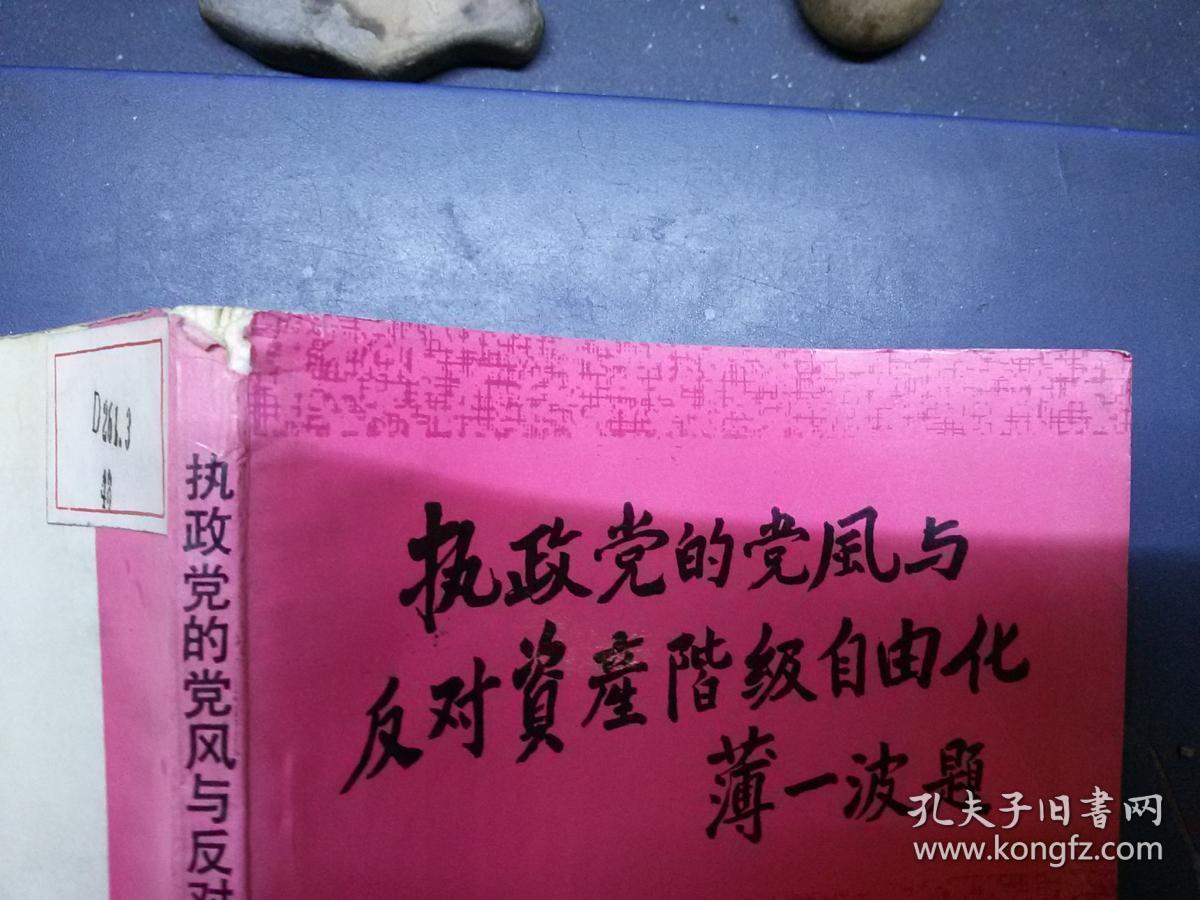 D261.3
48
执政党的党风与反对
执政党的党風与
反对資產階级自由化
薄一波题
孔夫子旧书网
www.kongfz.com